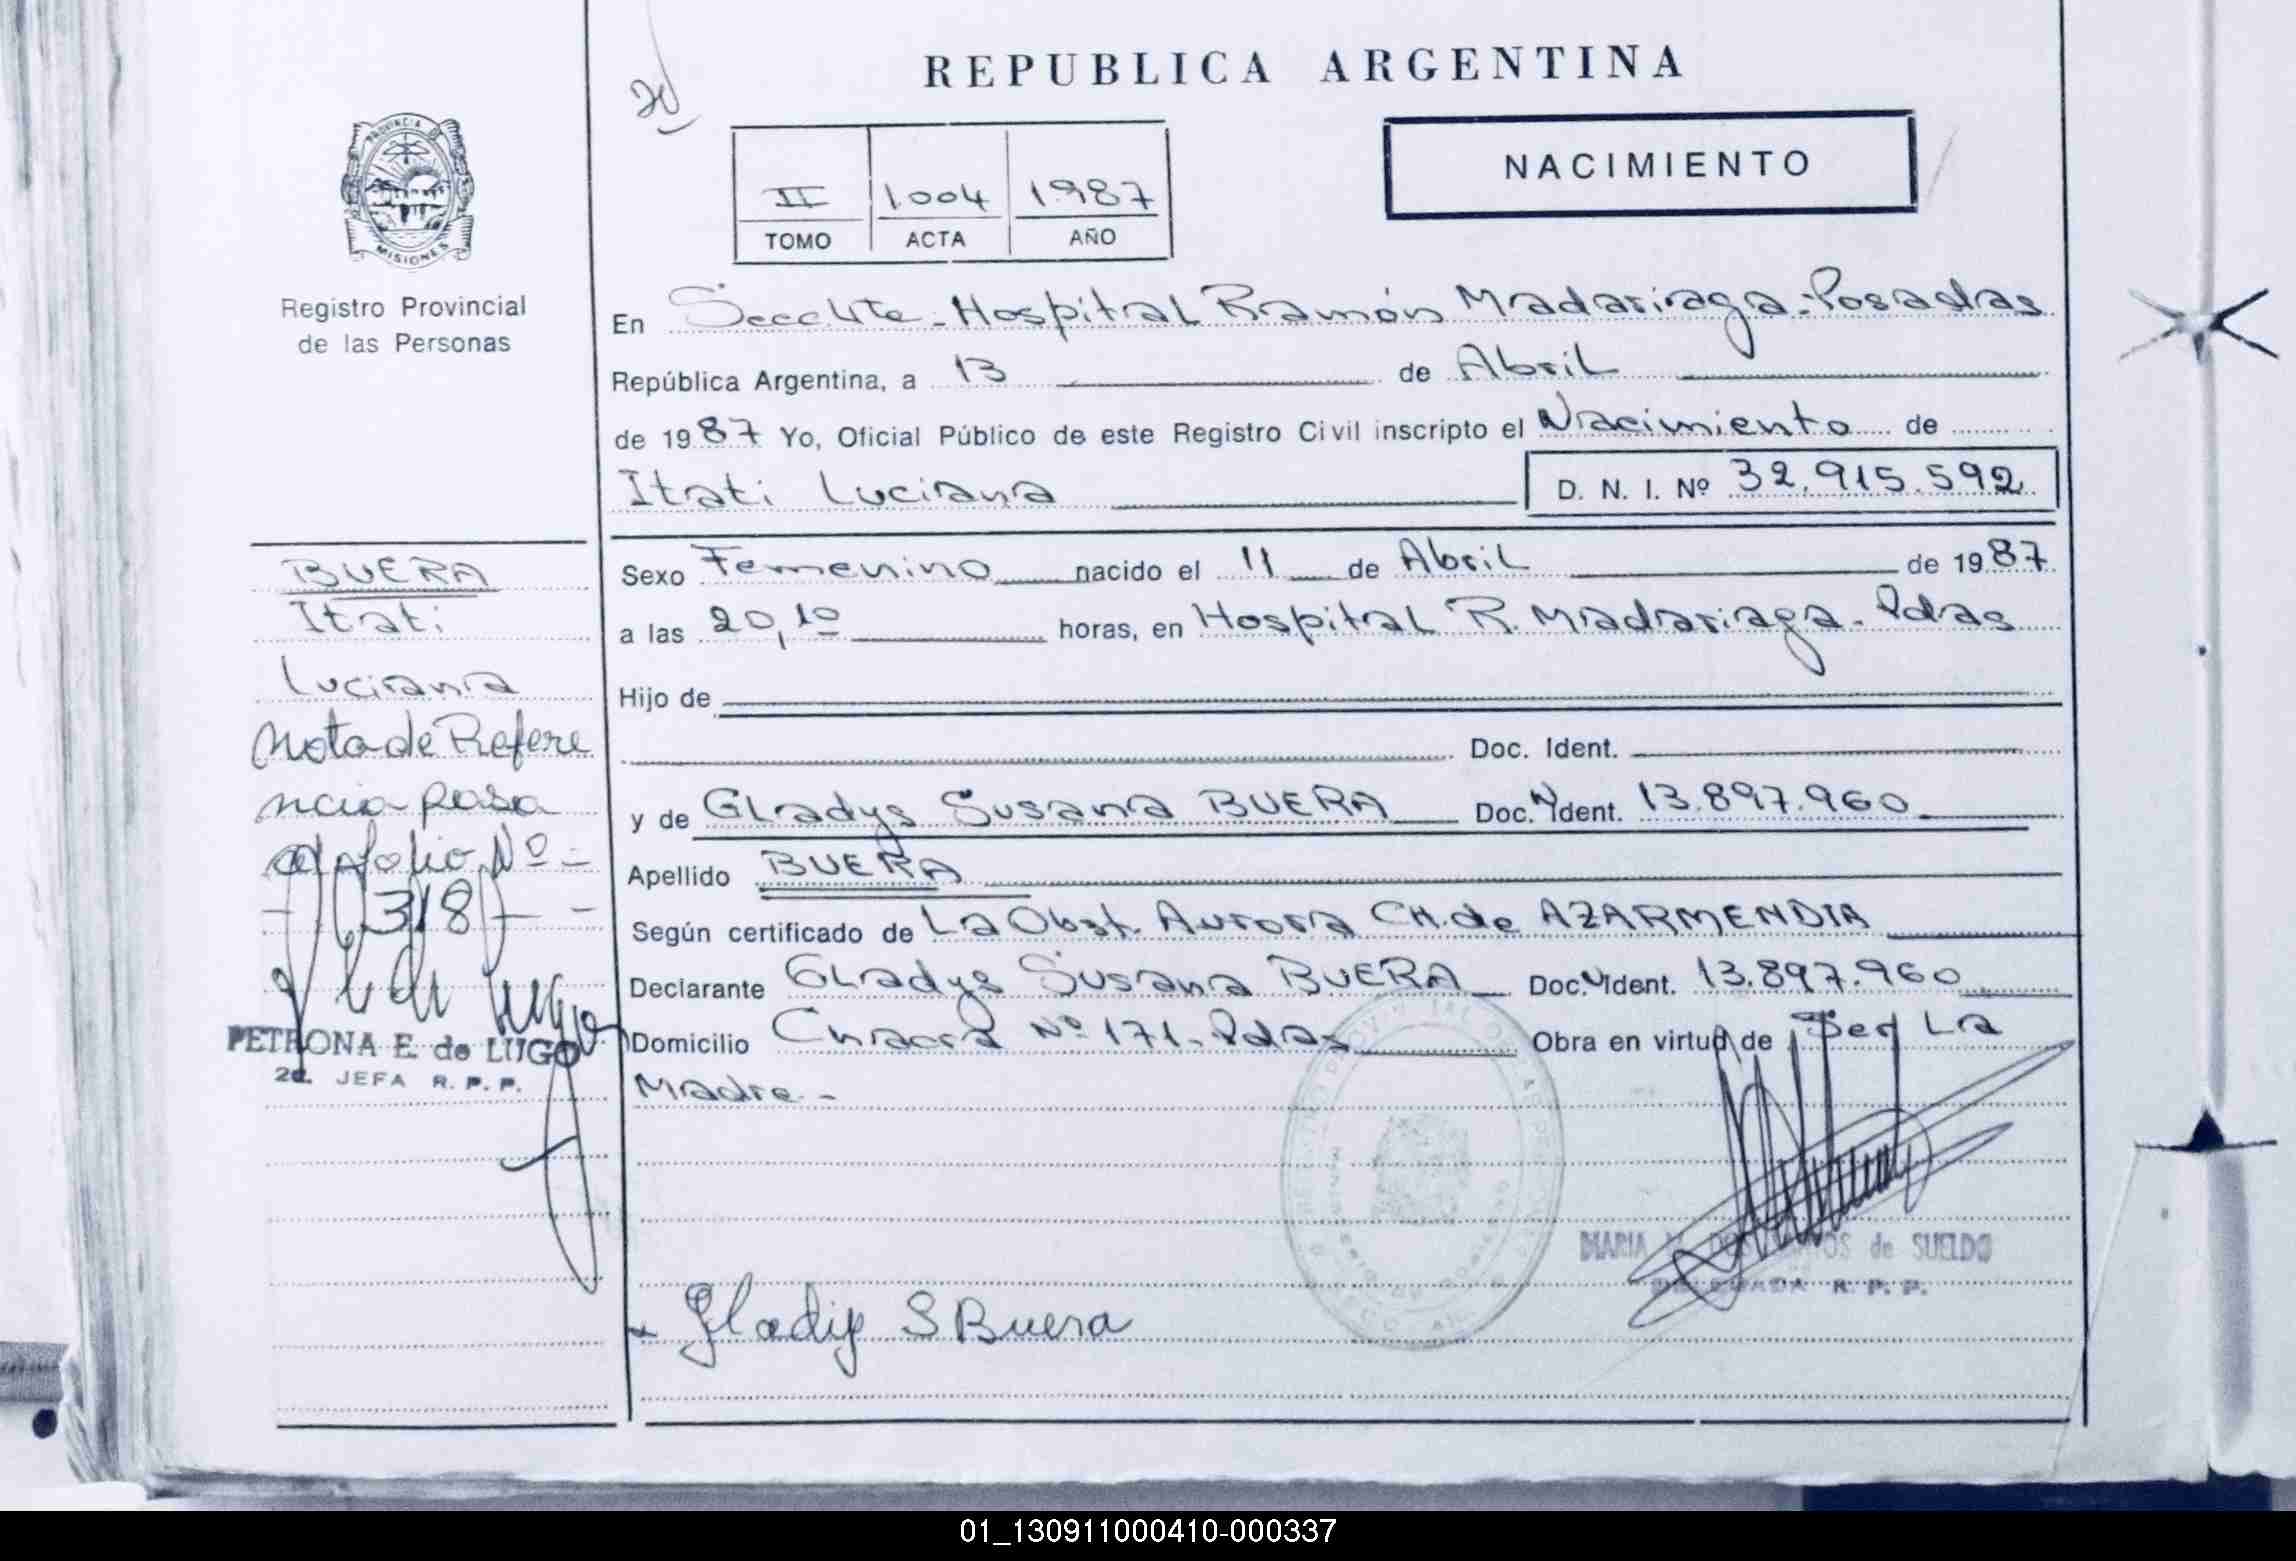 REPUBLICA ARGENTINA
PROVINCIA DE
MISIONES
Registro Provincial
de las Personas
II 1004 1987
TOMO ACTA AÑO
NACIMIENTO
En Secc. Hospital Ramón Madariaga - Posadas
República Argentina, a 13 de Abril
de 1987 Yo, Oficial Público de este Registro Civil inscripto el Nacimiento de
Itati Luciana D. N. I. Nº 32.915.592
BUERA
Itati
Luciana
Nota de Refere
ncia pasa
al folio Nº -
- 318 - -
PETRONA E. de LUGO
2da. JEFA R. P. P.
Sexo Femenino nacido el 11 de Abril de 1987
a las 20,10 horas, en Hospital R. Madariaga - Pdas
Hijo de
Doc. Ident.
y de Gladys Susana BUERA Doc. N Ident. 13.897.960
Apellido BUERA
Según certificado de La Obst. Aurora CH. de AZARMENDIA
Declarante Gladys Susana BUERA Doc. N Ident. 13.897.960
Domicilio Chacra Nº 171 - Pdas Obra en virtud de Ser La
Madre -
MARIA DOS SANTOS de SUELDO
DELEGADA R. P. P.
Gladys S Buera
01_130911000410-000337